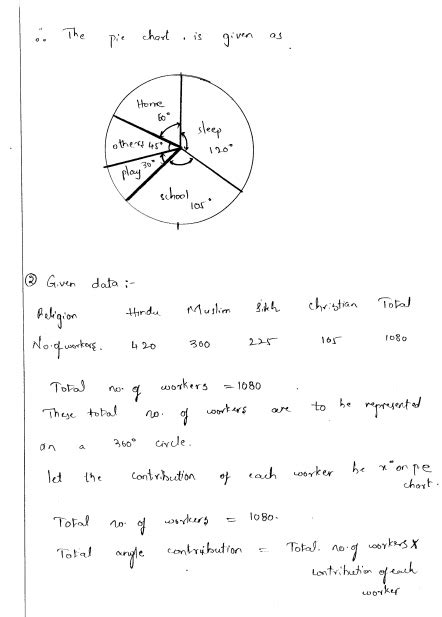 ∴ The pie chart . is given as
Home
60°
sleep
120°
others 45°
play 30°
school
105°
② Given data :-
Religion Hindu Muslim Sikh Christian Total
No. of workers. 420 300 225 105 1080
Total no. of workers = 1080 .
These total no. of workers are to be represented
on a 360° circle.
let the contribution of each worker be x° on pe
chart.
Total no. of workers = 1080.
Total angle contribution = Total. no. of workers X
contribution of each
worker